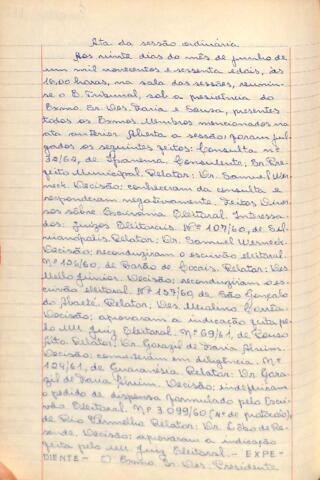 Ata da sessão ordinária
Aos vinte dias do mês de junho de
um mil novecentos e sessenta e dois, às
16,00 horas, na sala das sessões, reuniu-
se o E. Tribunal, sob a presidência do
Exmo. Sr. Des. Faria e Sousa, presentes
todos os Exmos. Membros mencionados na
ata anterior. Aberta a sessão, foram jul-
gados os seguintes feitos: Consulta nº
30/62, de Ipanema. Consulente: Sr. Pre-
feito Municipal. Relator: Dr. Samuel Wer-
neck. Decisão: conheceram da consulta e
responderam negativamente. Feitos Diver-
sos sobre Escrivania Eleitoral. Interessa-
dos: Juizos Eleitorais. Nº 107/60, de Sil-
vianópolis. Relator: Dr. Samuel Werneck.
Decisão: reconduziram o escrivão eleitoral.
Nº 126/60, de Barão de Cocais. Relator: Des.
Mello Júnior. Decisão: reconduziram o es-
crivão eleitoral. Nº 157/60, de São Gonçalo
do Abaeté. Relator: Des. Corrêa.
Decisão: aprovaram a indicação feita pe-
lo MM. Juiz Eleitoral. Nº 69/61, de Pouso
Alto. Relator: Dr. de Faria Alvim.
Decisão: converteram em diligência. Nº
124/61, de Guaranésia. Relator: Dr.
de Faria Alvim. Decisão: indeferiram
o pedido de dispensa formulado pelo Escri-
vão Eleitoral. Nº 3.099/60 (Nº de protocolo),
de Rio Vermelho. Relator: Dr. de Re-
sende. Decisão: aprovaram a indicação
feita pelo MM. Juiz Eleitoral. - EXPE-
DIENTE - O Exmo. Sr. Des. Presidente